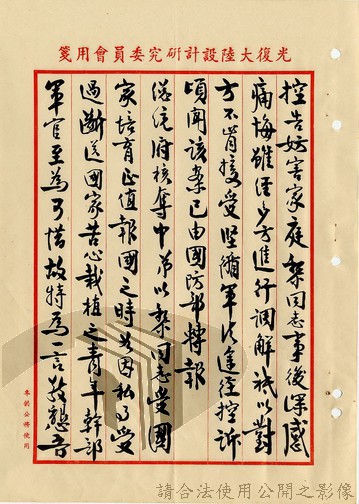 光復大陸設計研究委員會用箋
控告妨害家庭黎同志事後深感
痛悔雖經多方進行調解祇以對
方不肯接受堅循軍法途徑控訴
頃聞該案已由國防部轉報
總統府核奪中弟以黎同志受國
家培育正值報國之時若因私事受
過斷送國家苦心栽植之青年幹部
軍官至為可惜故特為一言敬懇吾
專供公務使用
請合法使用公開之影像